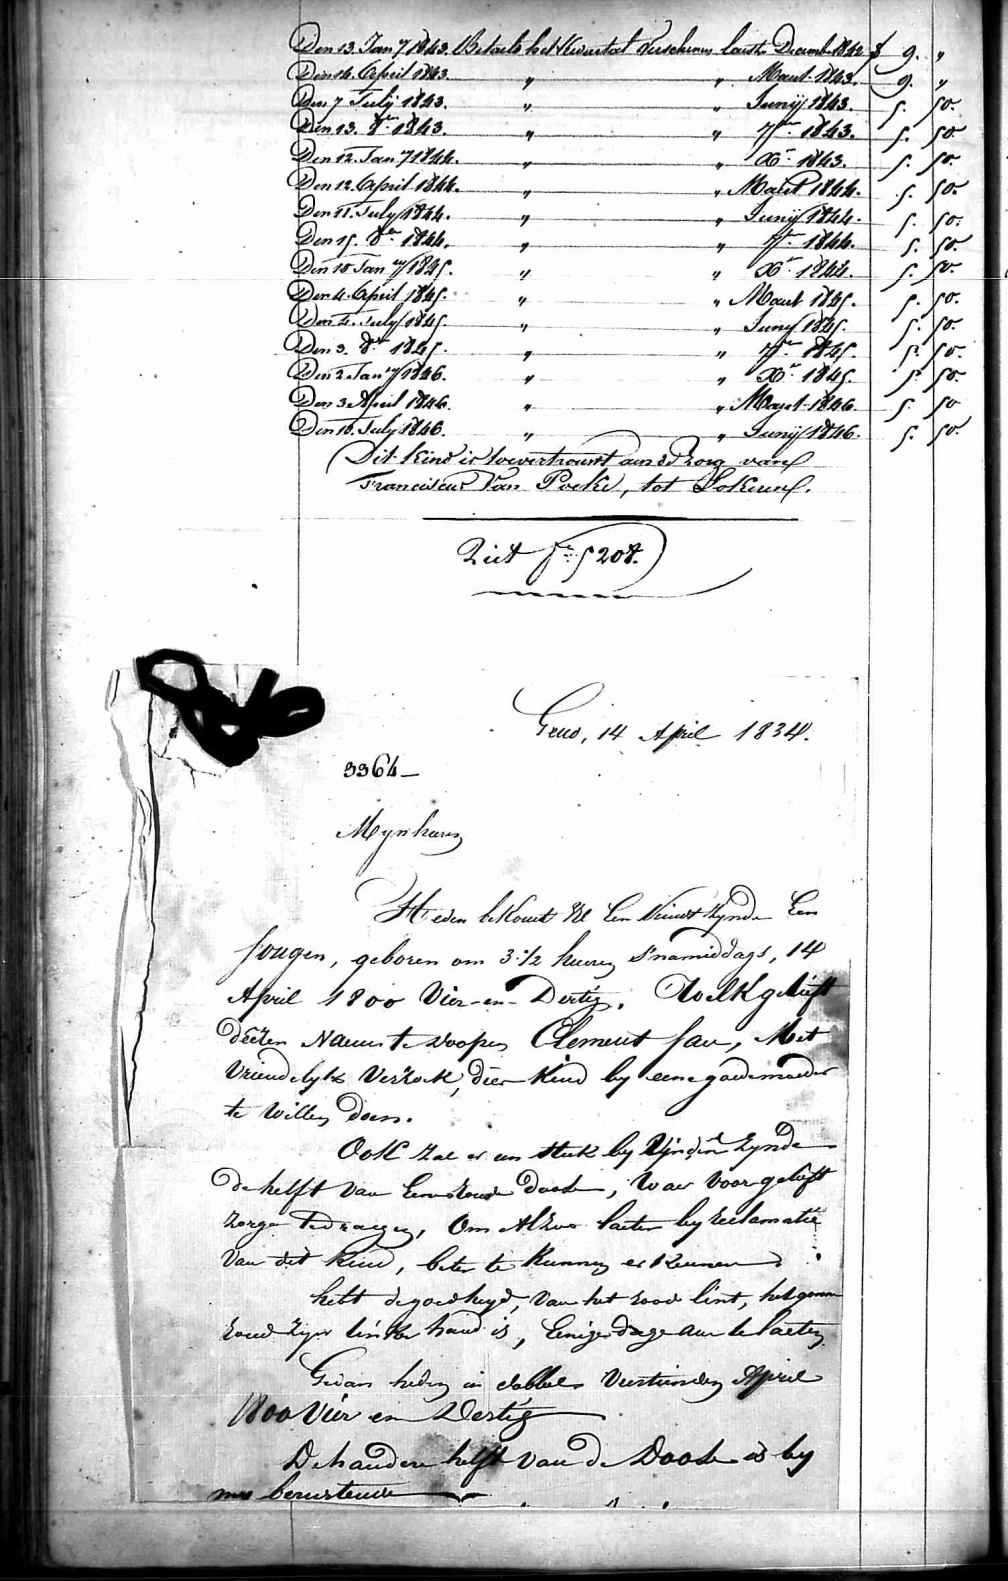 Den 13. Jan.y 1843. Betaelt het Kwartal verschenen laetst Decemb. 1842 f 9. "
Den 14. April 1843. " " Maert 1843. 9. "
Den 7 July 1843. " " Junij 1843. 5. 50.
Den 13. 8.er 1843. " " 7.er 1843. 5. 50.
Den 12. Jan.y 1844. " " X.r 1843. 5. 50.
Den 12. April 1844. " " Maert 1844. 5. 50.
Den 11. July 1844. " " Junij 1844. 5. 50.
Den 15. 8.er 1844. " " 7.er 1844. 5. 50.
Den 18 Jan.y 1845. " " X.r 1844. 5. 50.
Den 4. April 1845. " " Maert 1845. 5. 50.
Den 4. July 1845. " " Junij 1845. 5. 50.
Den 3. 8.er 1845. " " 7.er 1845. 5. 50.
Den 2. Jan.y 1846. " " X.r 1845. 5. 50.
Den 3 April 1846. " " Maert 1846. 5. 50
Den 10. July 1846. " " Junij 1846. 5. 50.
Dit kind is toevertrouwt aen de zorg van
Franciscus Van Poeke, tot Lokeren.
Ziet f.o 5208.
Gend, 14 April 1834.
3364
Mynheeren
Heden bekomt Ul Een Nieuw Kynde Een
Jongen, geboren om 3 1/2 heuren S'namiddags, 14
April 1800 Vier-en-Dertig. Welk gelieft
deezen Naem te doopen Clement Jan, Met
Vriendelyk Verzoek, dier kind by eene goede moeder
te willen doen.
Ook zal er een stuk by Vynden zynde
de helft van Eene Ronde doose, waer voor gelieft
zorge te draegen, Om Alzoo laeter by reclamatie
van dit kind, beter te kunnen er kennen
hebt de goedheyd, van het rood lint, het geene
rond zyn linker hand is, Eenige dage aen te laeten
Gedaen heden in dobbel Veertienden April
1800 Vier en Dertig
De handere helft van de Doose is by
my berustende